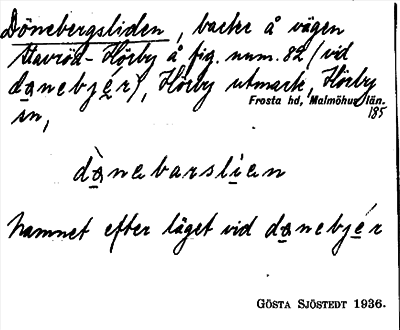 Dönebergsliden, backe å vägen
Stavröd-Hörby å fig. num. 82 (vid
danebjér), Hörby utmark, Hörby
sn, Frosta hd, Malmöhus län.
185
dànabarslian
Namnet efter läget vid danebjér
GÖSTA SJÖSTEDT 1936.